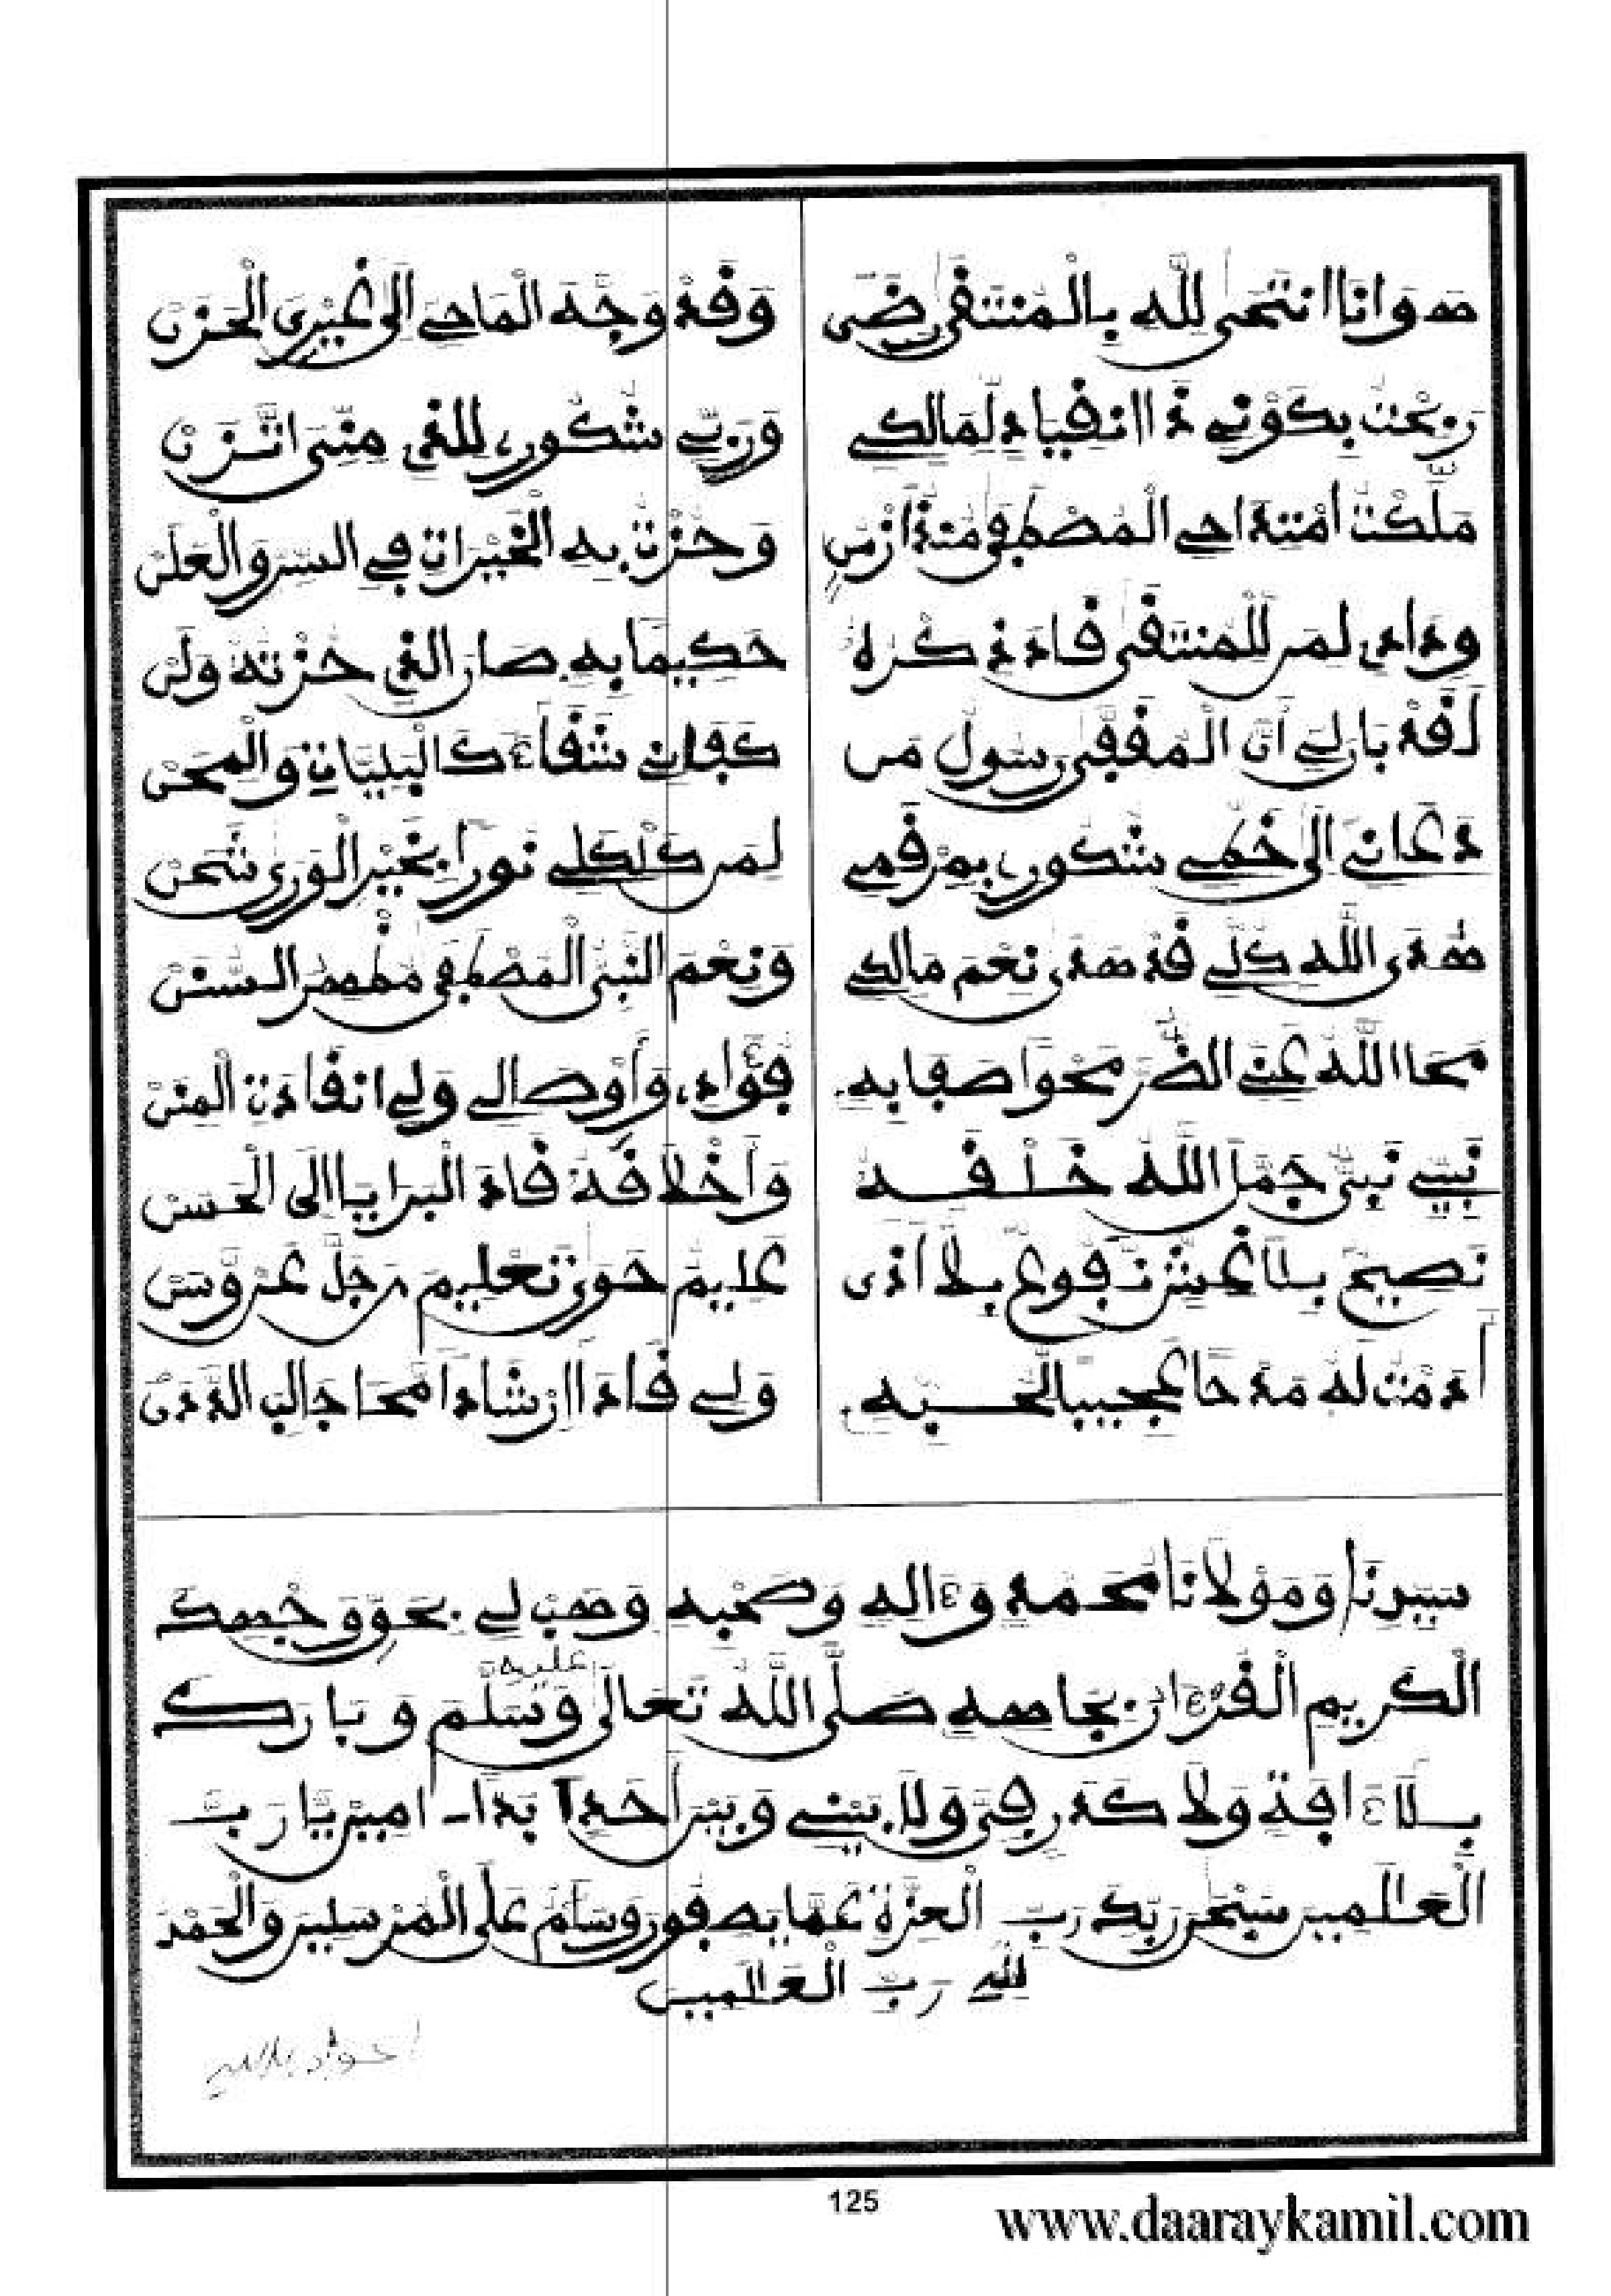 هَوَانَا انتَحَى لِلَّهِ بِالْمُنتَقَى رِضًى وَقَدْ وَجَّهَ الْمَاحِي إِلَى غَيْرِيَ الْحَزَنْ
رَبِحْتُ بِكَوْنِي ذَا انقِيَادٍ لِمَالِكِي وَرَبِّي شَكُورٌ لِلَّذِي مِنِّيَ اتَّزَنْ
مَلَكْتُ الْمُصْطَفَى مُنْذُ أَزْمُنٍ وَحُزْتُ بِهِ الْخَيْرَاتِ فِي السِّرِّ وَالْعَلَنْ
وِدَادِي لِمَنْ لِلْمُنتَقَى قَادَ ذِكْرَهُ حَكِيمًا بِهِ صَارَ الَّذِي حُزْتُهُ وَلَنْ
لَقَدْ بَانَ لِي أَنَّ الْمُقَفَّى رَسُولُ مَنْ كَفَانِي شَقَاءً كَالْبَلِيَّاتِ وَالْمِحَنْ
دَعَانِي إِلَى خَطِّي شَكُورٌ بِمِرْقَمِي لِمَنْ كَانَ لِي نُورًا بِخَيْرِ الْوَرَى شَحَنْ
هَدَى اللَّهُ كُلِّي قَدْ هَدَى نِعْمَ مَالِكِي وَنِعْمَ النَّبِيُّ الْمُصْطَفَى مُظْهِرُ السُّنَنْ
مَحَا اللَّهُ عَنِّي الضُّرَّ مَحْوًا صَفَا بِهِ فُؤَادِي وَأَوْصَالِي وَلِي انقَادَتِ الْمِنَنْ
نَبِيِّي نَبِيٌّ جَمَّلَ اللَّهُ خَلْقَهُ وَأَخْلَاقُهُ قَادَ الْبَرَايَا إِلَى الْحَسَنْ
نَصِيحٌ بِلَا غِشٍّ نَفُوعٌ بِلَا أَذَى عَلِيمٌ حَوَى تَعْلِيمَ مَنْ جَلَّ عَنْ وَسَنْ
أَدَمْتُ لَهُ مَدْحًا عَجِيبًا لِحُبِّهِ وَلِي قَادَ إِرْشَادًا مَحَا جَالِبَ الدَّدَنْ
سَيِّدِنَا وَمَوْلَانَا مُحَمَّدٍ وَءَالِهِ وَصَحْبِهِ وَهَبْ لِي بِحَقِّ وَجْهِكَ
الْكَرِيمِ الْقُرْءَانَ بِجَاهِهِ صَلَّى اللَّهُ تَعَالَى عَلَيْهِ وَسَلَّمَ وَبَارَكَ
بِلَا ءَافَةٍ وَلَا كَدَرٍ فِيَّ وَلَا بَيْنِي وَبَيْنَ أَحَدٍ أَبَدًا ـ ءَامِينَ يَا رَبَّ
الْعَالَمِينَ سُبْحَانَ رَبِّكَ رَبِّ الْعِزَّةِ عَمَّا يَصِفُونَ وَسَلَامٌ عَلَى الْمُرْسَلِينَ وَالْحَمْدُ
لِلَّهِ رَبِّ الْعَالَمِينَ
125
www.daaraykamil.com